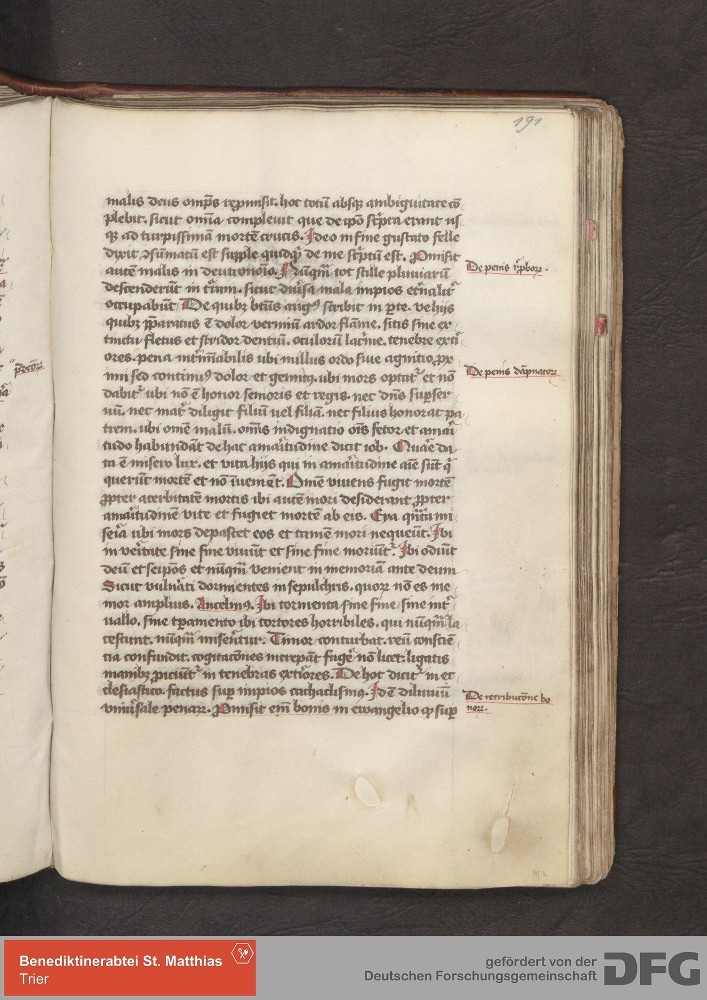 191
malis deus omp̄s rep̄misit. hoc totū absq3 ambiguitate cō
plebit. sicut om̄ia compleuit que de ip̄o sc̄pta erant us
q3 ad turpissimā mortē crucis. Ideo in fine gustato felle
dixit ɔsūmatū est supple quicq̄ de me sc̄ptū est. Pmisit
autē malis in deut̄onōio. Nūq̄m tot stille pluuiarū
descenderūt in t̄ram. sicut diuīsa mala impios et̄nalit̄
occupabūt De quib3 bt̄us aug9 scribit in p̄te. ve hijs
quib3 pp̄aratus ē dolor vermiū ardor flam̄e. sitis sine ex
tinctu fletus et stridor dentiū. oculorū lac̄me. tenebre ext̄i
ores. pena int̄minabilis ubi nullus ordo siue agnitio, px
imi sed continu9 dolor et gemit9. ubi mors optat̄ et nō
dabit̄ ubi nō ē honor senioris et regis. nec dn̄s sup̄ ser
uū. nec mat̄ diligit filiū uel filiā. nec filius honorat pa
trem. ubi om̄e malū. om̄is indignatio oīs fetor et amar̄i
tudo habundāt de hac amar̄itudine dicit iob. Quar̄e da
ta ē misero lux. et vita hijs qui in amar̄itudine aīe sūt q̄
querūt mortē et nō īueniēt. Omē viuens fugit mortē
ꝓpter acerbitatē mortis ibi autē mori desiderant ꝓpter
amar̄itudinē vite et fugiet mortē ab eis. Exa q̄nta mi
ser̄ia ubi mors depascet eos et tamē mori nequeūt. Ibi
in ver̄itate sine fine viuūt et sine fine moriūt̄. Ibi odiūt
deū et seip̄os et nūq̄m venient in memoriam ante deum
Sicut vuln̄ati dormientes in sepulchris. quoꝝ nō es me
mor amplius. Ancelm9. Ibi tormenta sine fine / sine int̄
uallo. sine tp̄amento ibi tortores horribiles. qui nūq̄m la
cescunt. nūq̄m miserēt̄ur. Timor conturbat. reū conscīe
tia confundit. cogitac̄ones increpāt fuger̄ nō licet. ligatis
manib3 ꝓiciūt̄ in tenebras ext̄iōres. De hoc dicit̄ in ec
clesiastico. factus sup̄ impios cathaclism9. Id ē diluuiū
vniūsale penaꝝ. Pmisit em̄ bonis in ewangelio ꝙ sup̄
De penis
De penis dāpnatoꝝ
De retribucōne bo
noꝝ.
Benediktinerabtei St. Matthias
Trier
gefördert von der
Deutschen Forschungsgemeinschaft
DFG